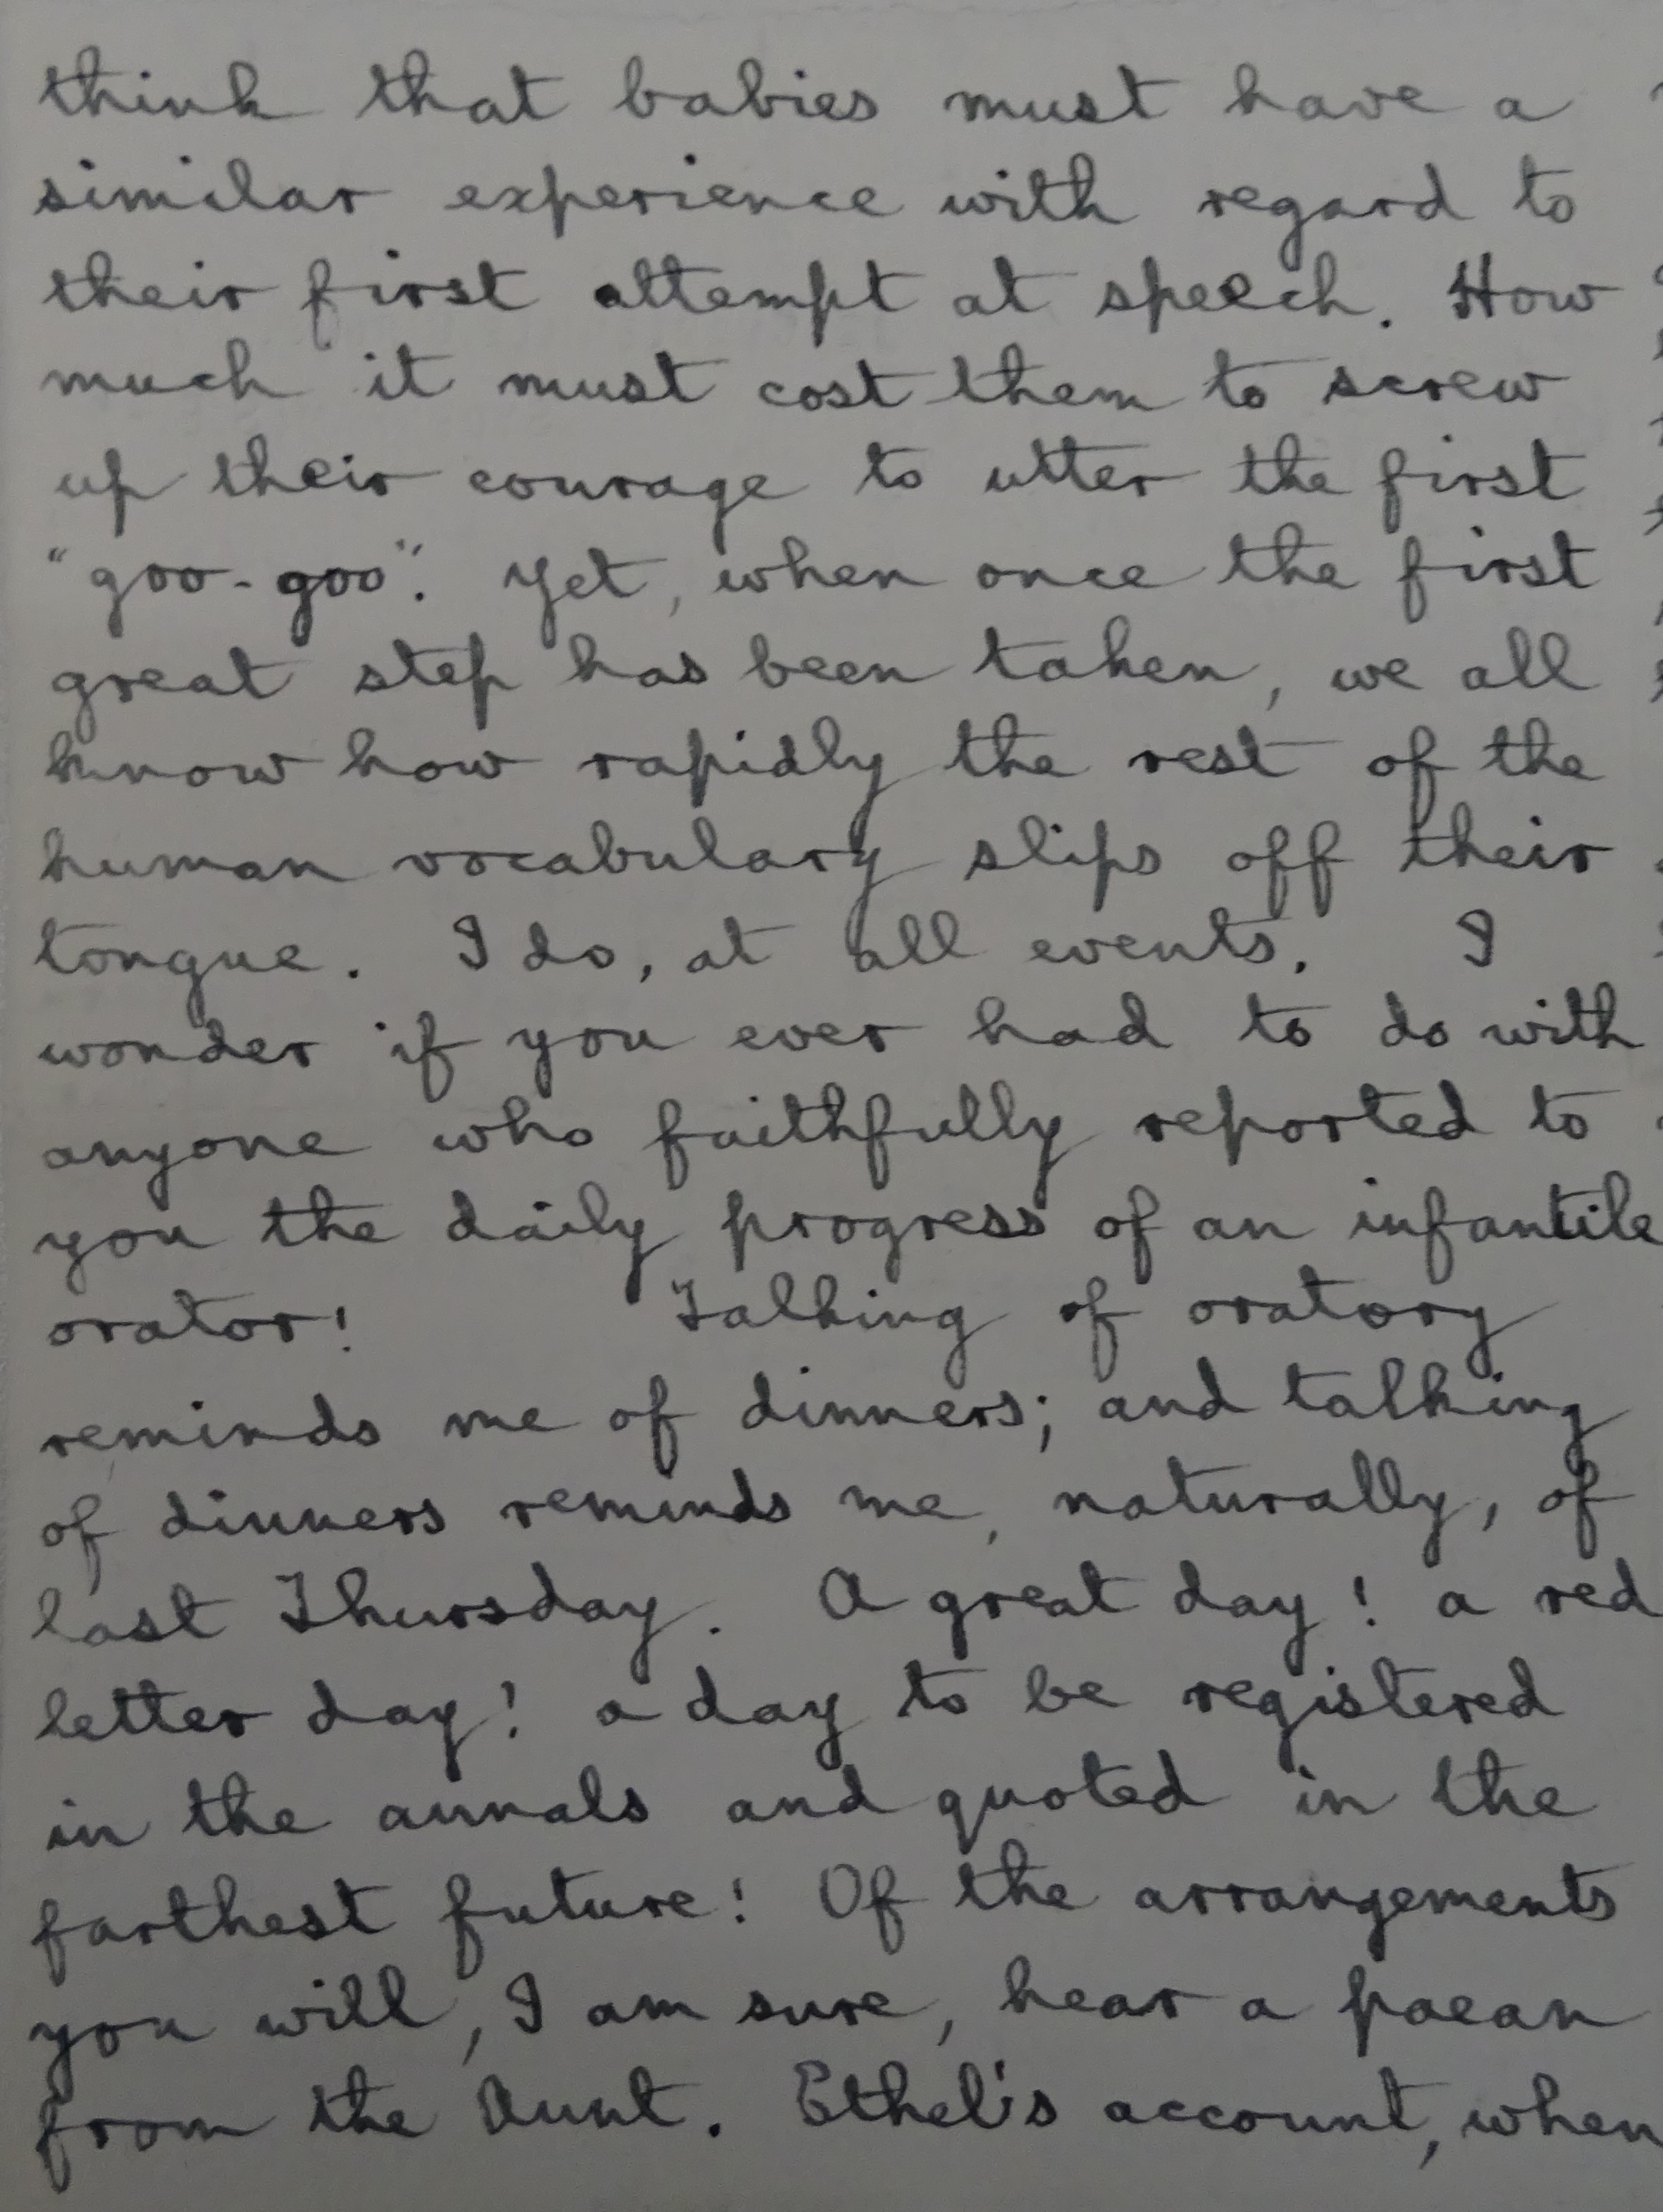 think that babies must have a
similar experience with regard to
their first attempt at speech. How
much it must cost them to screw
up their courage to utter the first
"goo-goo". Yet, when once the first
great step has been taken, we all
know how rapidly the rest of the
human vocabulary slips off their
tongue. I do, at all events. I
wonder if you ever had to do with
anyone who faithfully reported to
you the daily progress of an infantile
orator! Talking of oratory
reminds me of dinners; and talking
of dinners reminds me, naturally, of
last Thursday. A great day! a red
letter day! a day to be registered
in the annals and quoted in the
farthest future! Of the arrangements
you will, I am sure, hear a paean
from the Aunt. Ethel's account, when